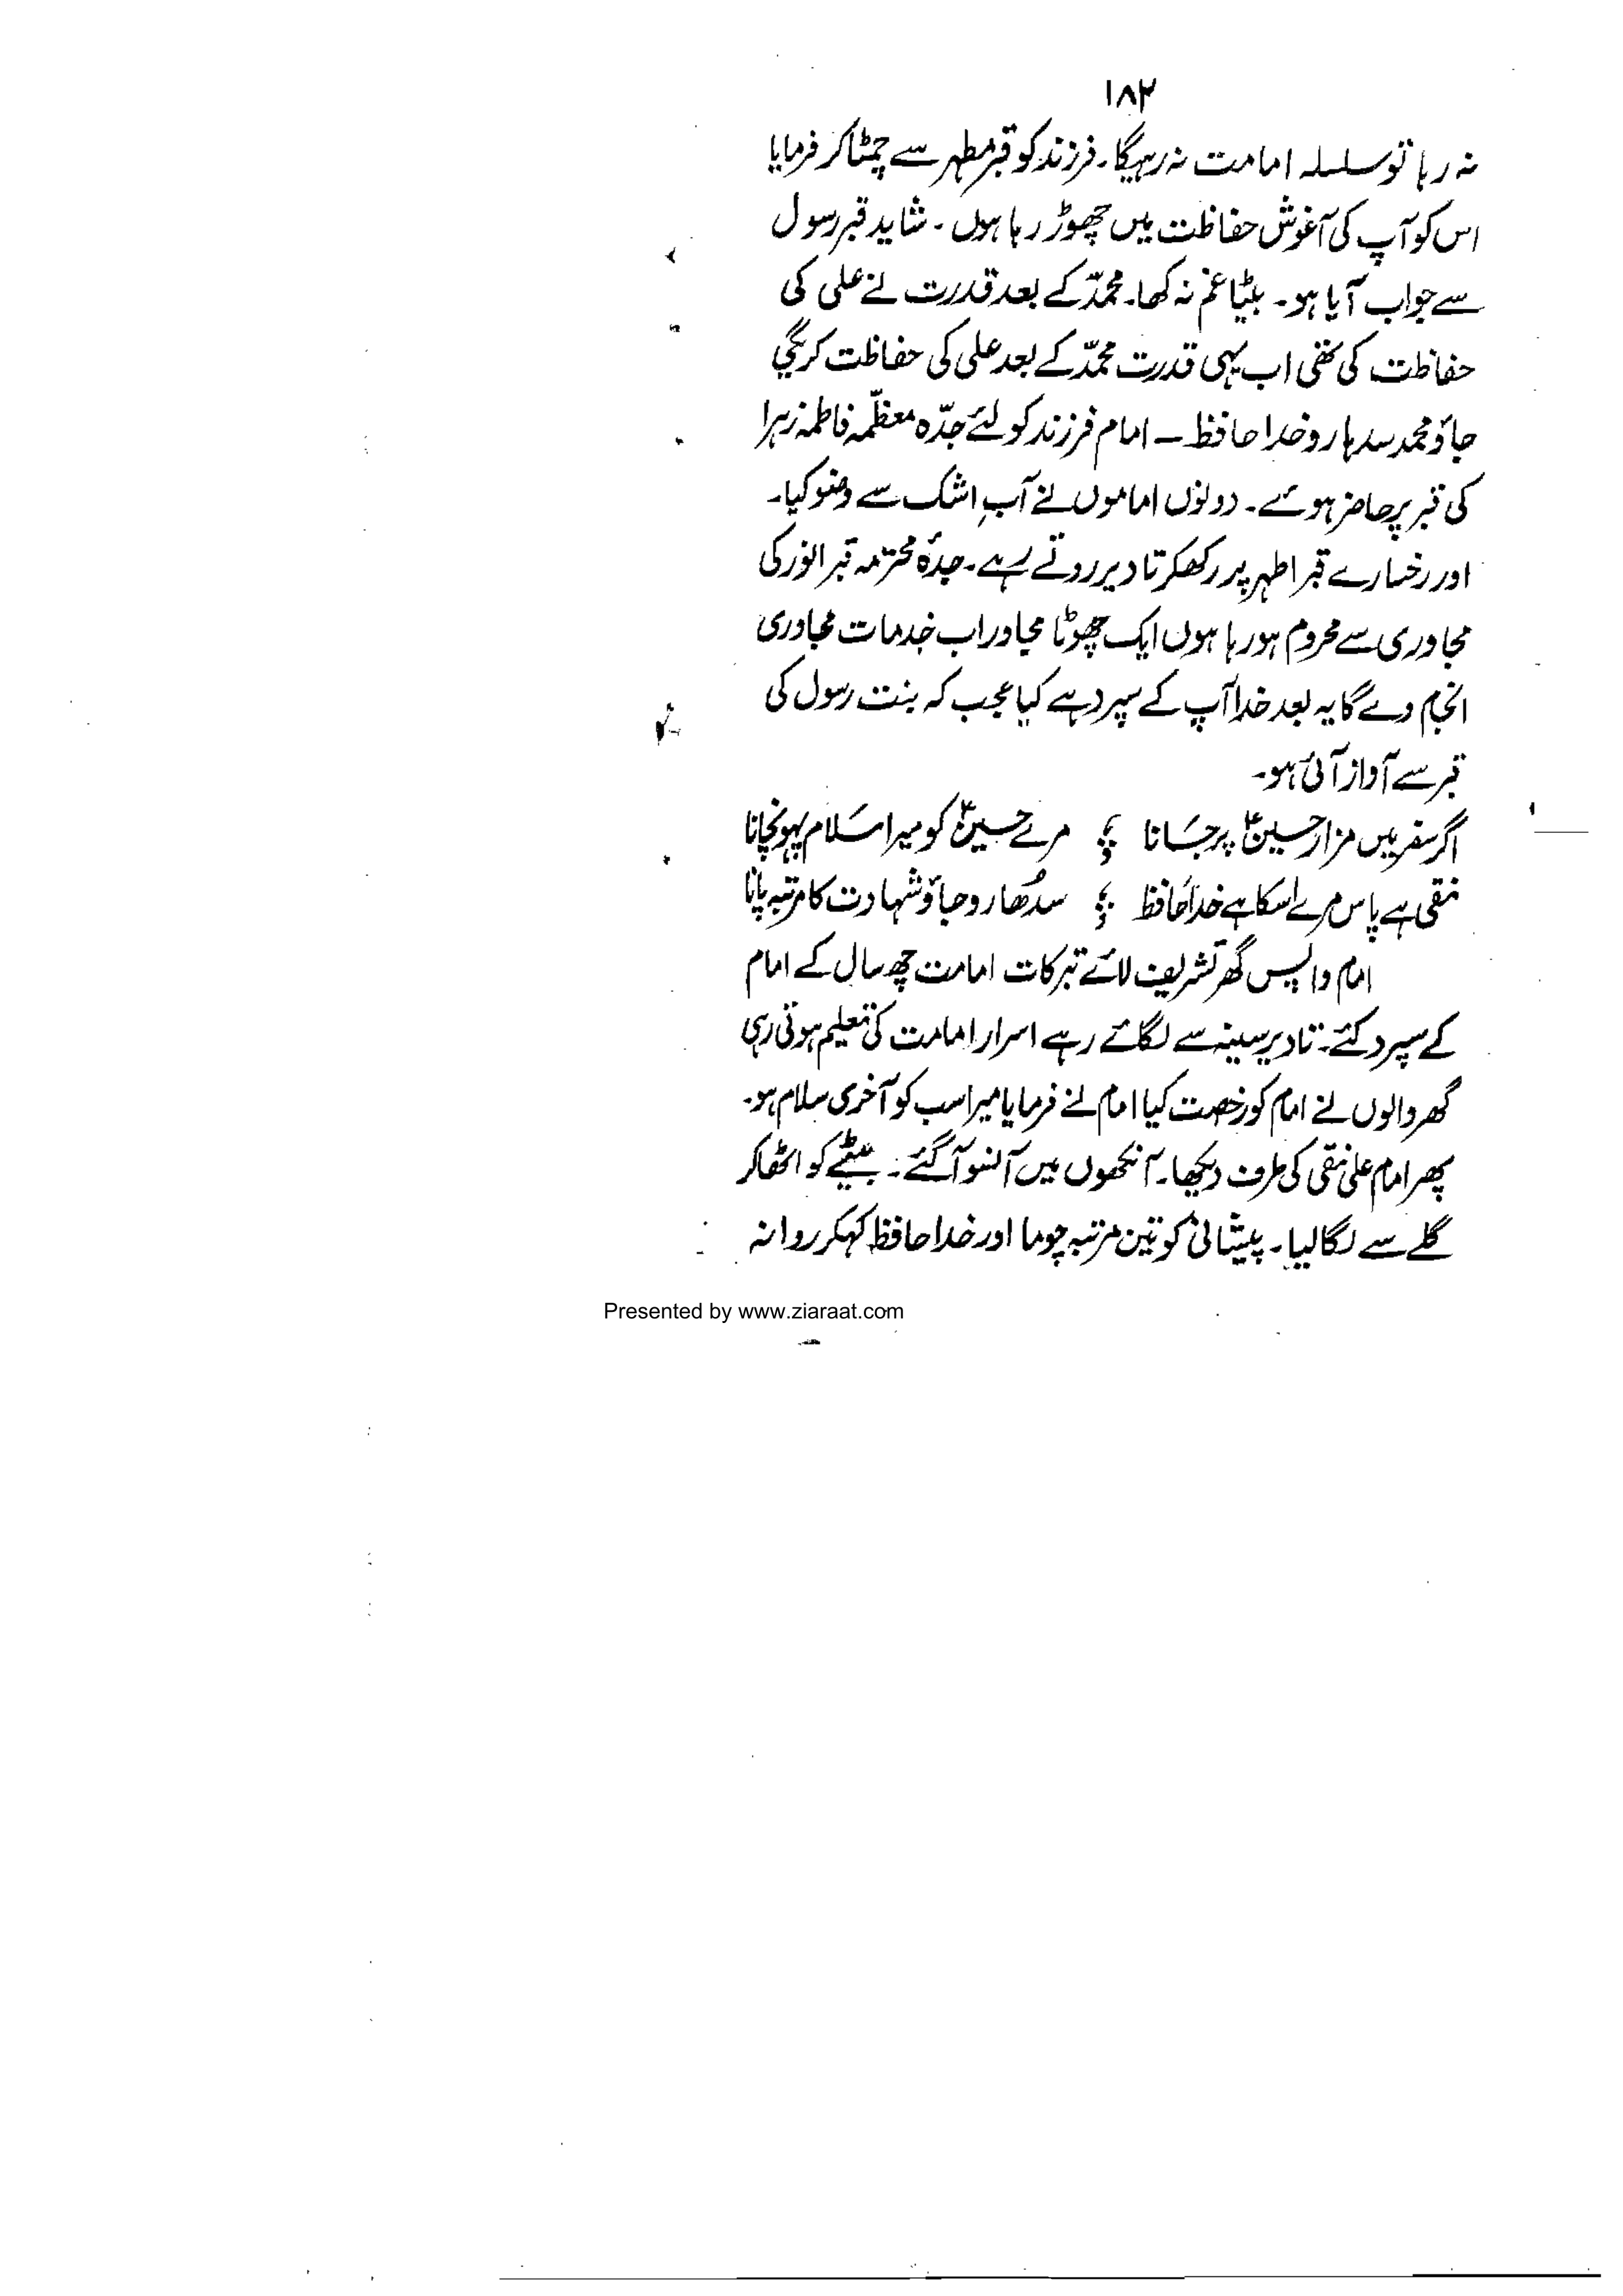 ۱۸۲
نہ رہا تو سلسلہ امامت نہ رہیگا۔ فرزند کو قبر مطہر سے چمٹا کر فرمایا
اس کو آپ کی آغوش حفاظت میں چھوڑ رہا ہوں ۔ شاید قبر رسول
سے جواب آیا ہو ۔ بیٹا غم نہ کھا۔ محمدؐ کے بعد قدرت نے علی کی
حفاظت کی تھی اب یہی قدرت محمدؐ کے بعد علی کی حفاظت کریگی
جاؤ محمد سدہارو خدا حافظ ـ امام فرزند کو لئے جدّہ معظّمہ فاطمہ زہرا
کی قبر پر حاضر ہوئے ۔ دونوں اماموں نے آبِ اشک سے وضو کیا۔
اور رخسارے قبر اطہر پر رکھکر تا دیر روتے رہے ۔ جدۂ محترمہ قبر انور کی
مجاوری سے محروم ہو رہا ہوں ایک چھوٹا مجاور اب خدمات مجاوری
انجام دے گا یہ بعد خدا آپ کے سپرد ہے کیا عجب کہ بنت رسول کی
قبر سے آواز آئی ہو۔
اگر سفر میں مزار حسینؑ پر جانا ؛ مرے حسینؑ کو میرا سلام پہونچانا
نقی ہے پاس مرے اسکا ہے خدا حافظ ؛ سدُھارو جاؤ شہادت کا مرتبہ پانا
امام واپس گھر تشریف لائے تبرکات امامت چھ سال کے امام
کے سپرد کئے ۔ تا دیر سینہ سے لگائے رہے اسرار امامت کی تعلیم ہوتی رہی
گھر والوں نے امام کو رخصت کیا امام نے فرمایا میرا سب کو آخری سلام ہو۔
پھر امام علی نقی کی طرف دیکھا۔ آنکھوں میں آنسو آ گئے ۔ بیٹے کو اٹھا کر
گلے سے لگا لیا ۔ پیشانی کو تین مرتبہ چوما اور خدا حافظ کہکر روانہ
Presented by www.ziaraat.com